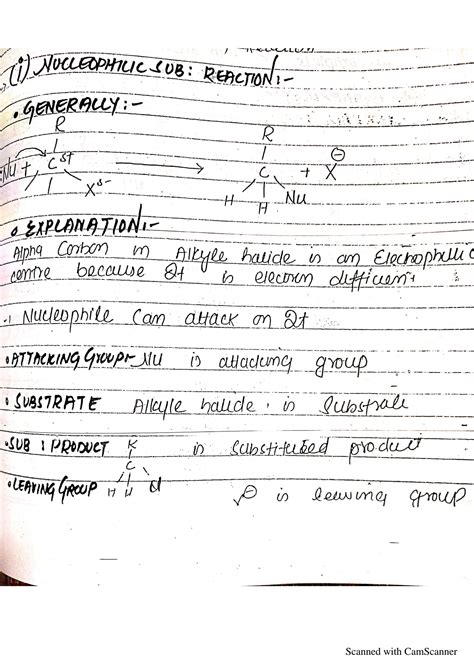 (i) NUCLEOPHILIC SUB: REACTION:-
• GENERALLY:-
R R
:Nu + C δ+ → C + X ⊖
X δ- H H Nu
• EXPLANATION:-
Alpha Carbon in Alkyle halide is an Electrophilic
centre because It is electron difficient
Nucleophile Can attack on It
• ATTACKING GROUP:- Nu is attacking group
• SUBSTRATE Alkyle halide is Substrate
• SUB: PRODUCT R is Substituted product
C
• LEAVING GROUP H H is leaving group
Scanned with CamScanner